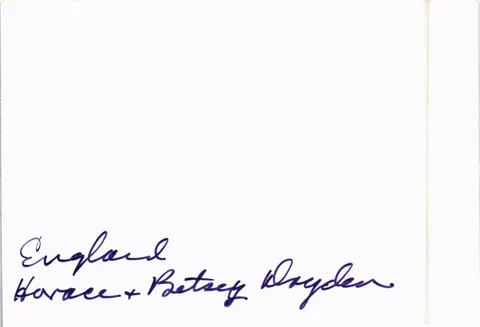 England
Horace + Betsey Dryden